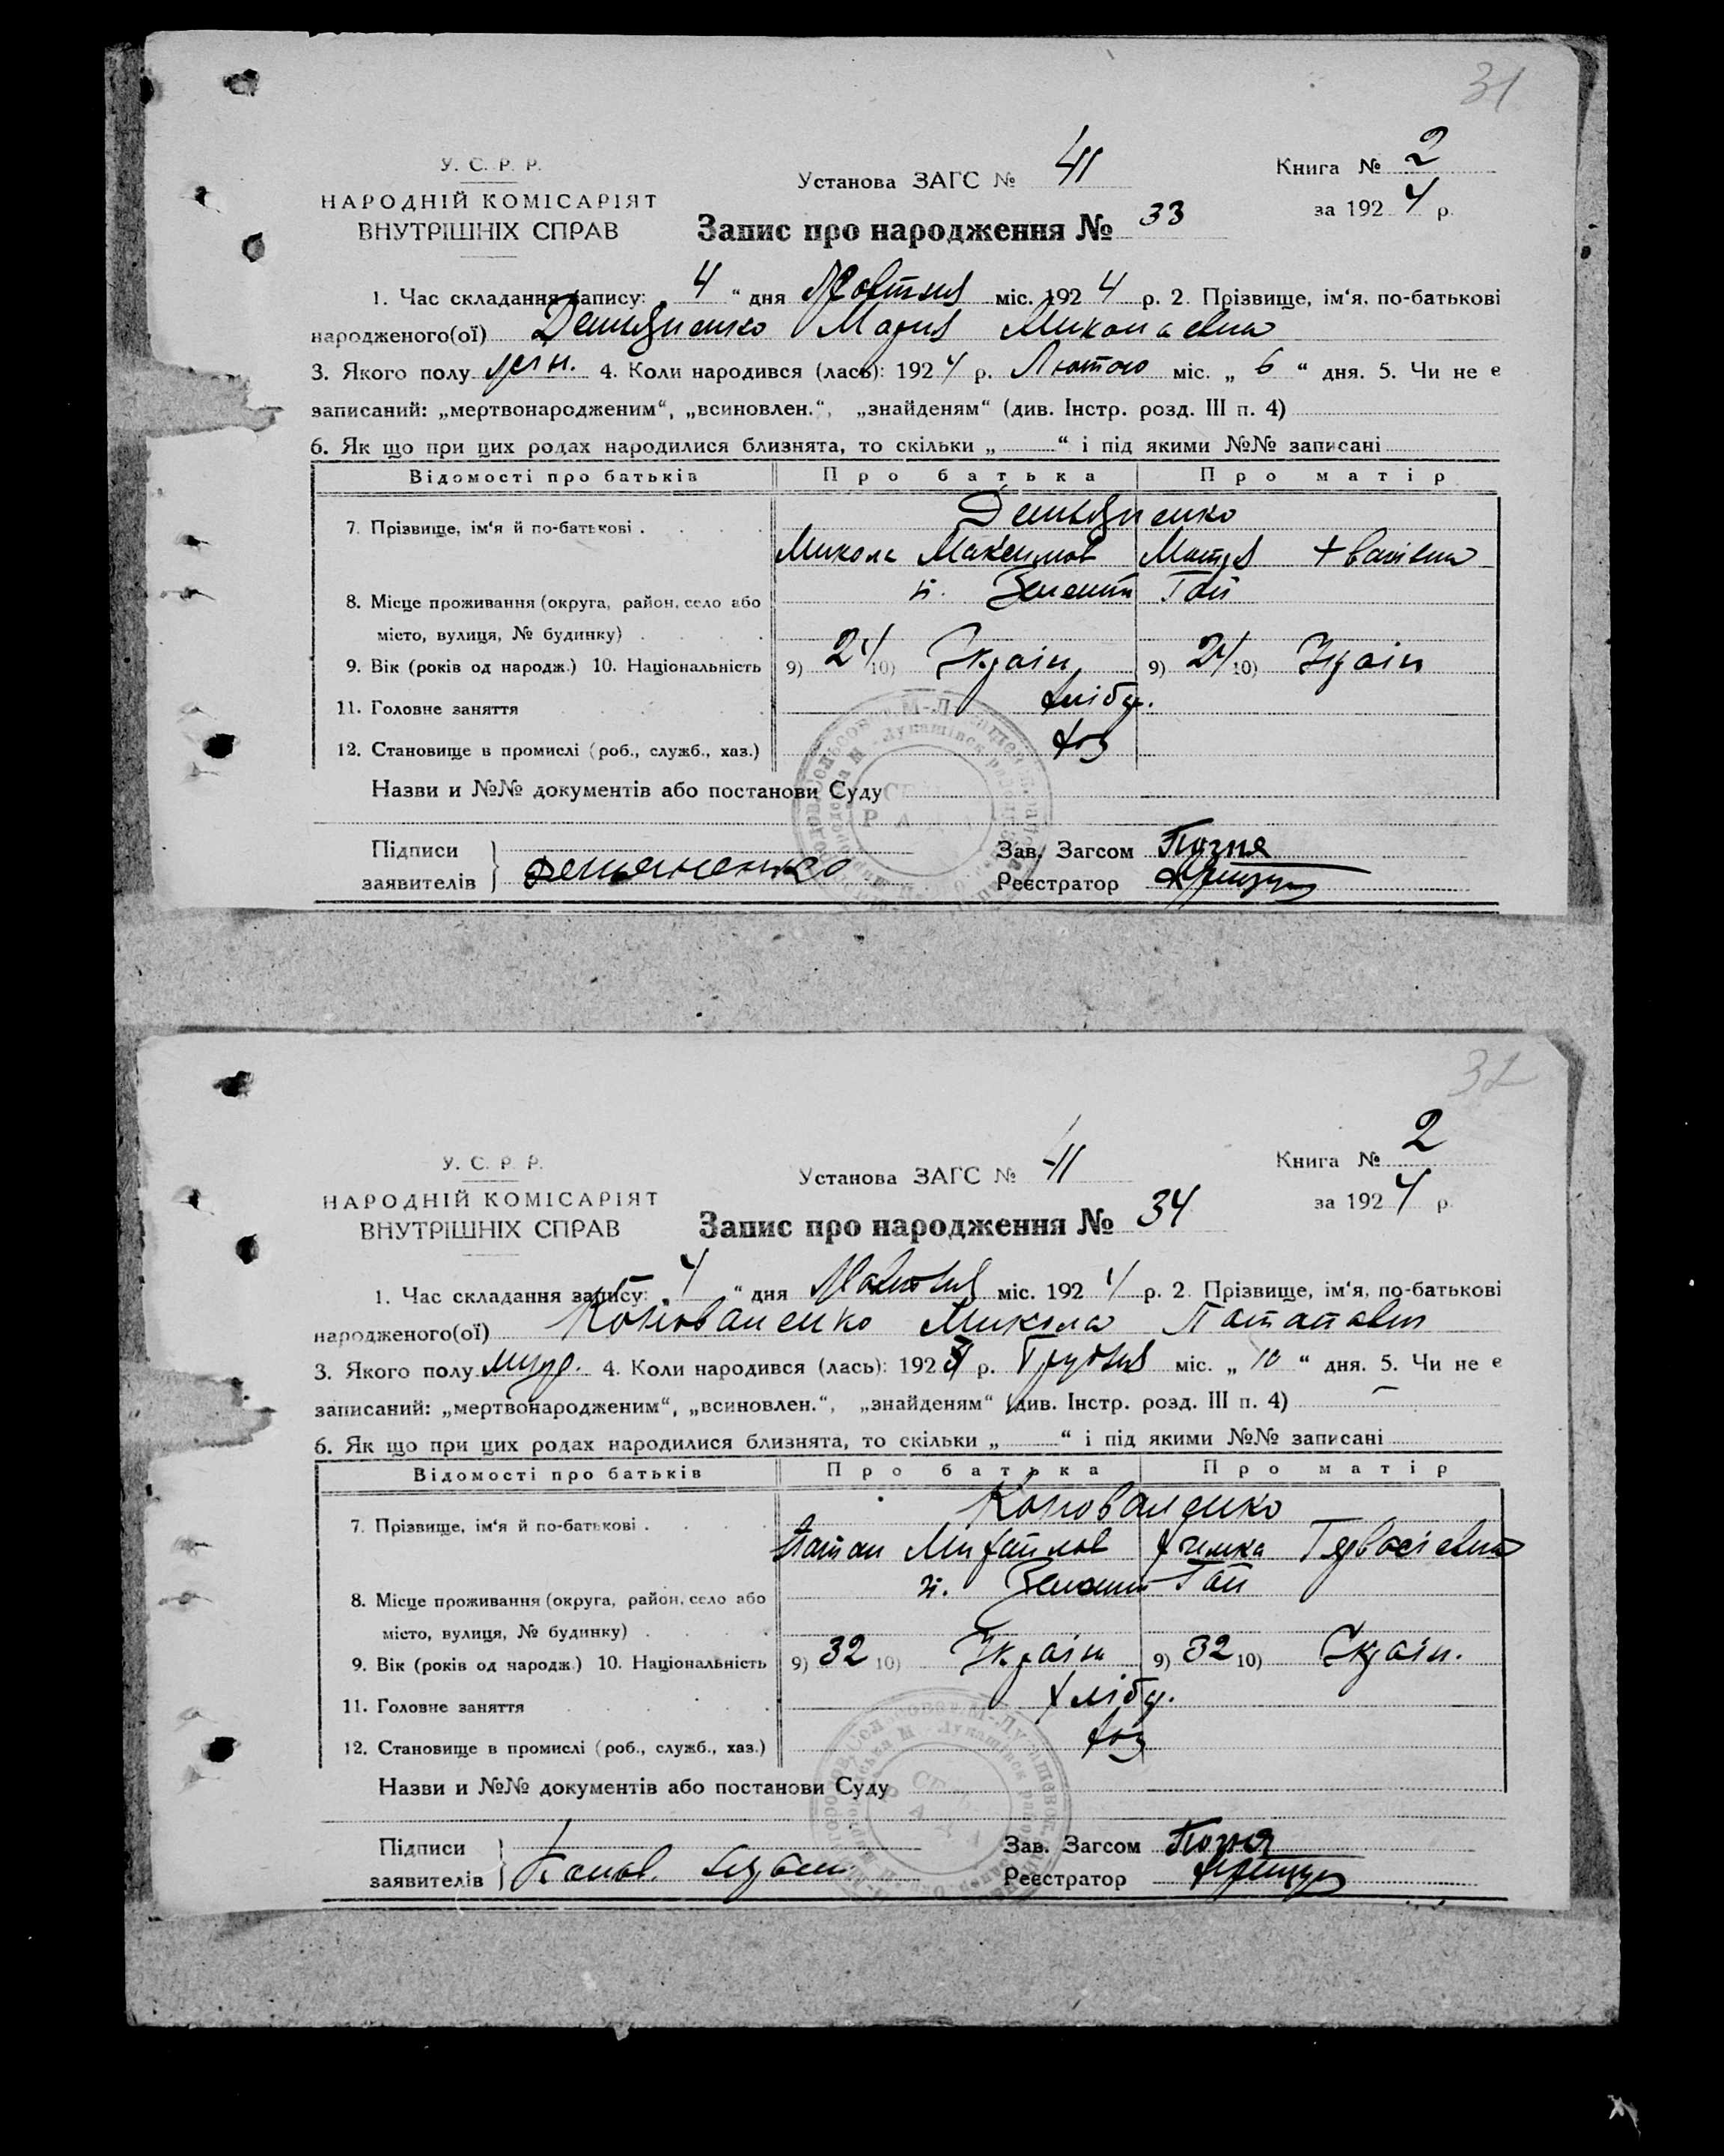 31
У. С. Р. Р.
НАРОДНІЙ КОМІСАРІЯТ
ВНУТРІШНІХ СПРАВ
Установа ЗАГС № 41
Книга № 2
за 1924 р.
Запис про народження № 33
1. Час складання запису: 4 " дня Жовтня міс. 1924 р. 2. Прізвище, ім'я, по-батькові
народженого(ої) Демьяненко Мария Миколаевна
3. Якого полу жін. 4. Коли народився (лась): 1924 р. Лютого міс. „ 6 " дня. 5. Чи не є
записаний: „мертвонародженим", „всиновлен.", „знайденям" (див. Інстр. розд. III п. 4)
6. Як що при цих родах народилися близнята, то скільки „ " і під якими №№ записані
Відомості про батьків Про батька Про матір
7. Прізвище, ім'я й по-батькові . Демьяненко
Микола Максимов
8. Місце проживання (округа, район, село або х. Зелений Гай
місто, вулиця, № будинку)
9. Вік (років од народж.) 10. Національність 9) 24 10) Україн. 9) 24 10) Україн
11. Головне заняття хлібор.
12. Становище в промислі (роб., служб., хаз.) хоз
Назви и №№ документів або постанови Суду
Підписи
заявителів Демьяненко
Зав. Загсом
Реєстратор
32
У. С. Р. Р.
НАРОДНІЙ КОМІСАРІЯТ
ВНУТРІШНІХ СПРАВ
Установа ЗАГС № 41
Книга № 2
за 1924 р.
Запис про народження № 34
1. Час складання запису: 4 " дня Жовтня міс. 1924 р. 2. Прізвище, ім'я, по-батькові
народженого(ої) Коноваленко Микола Потапович
3. Якого полу муж. 4. Коли народився (лась): 1923 р. Грудня міс. „ 10 " дня. 5. Чи не є
записаний: „мертвонародженим", „всиновлен.", „знайденям" (див. Інстр. розд. III п. 4) —
6. Як що при цих родах народилися близнята, то скільки „ " і під якими №№ записані
Відомості про батьків Про батька Про матір
7. Прізвище, ім'я й по-батькові . Коноваленко
Потап Михайлов
8. Місце проживання (округа, район, село або х. Зелений Гай
місто, вулиця, № будинку)
9. Вік (років од народж.) 10. Національність 9) 32 10) Україн 9) 32 10) Україн.
11. Головне заняття хлібор.
12. Становище в промислі (роб., служб., хаз.) хоз
Назви и №№ документів або постанови Суду
Підписи
заявителів
Зав. Загсом
Реєстратор